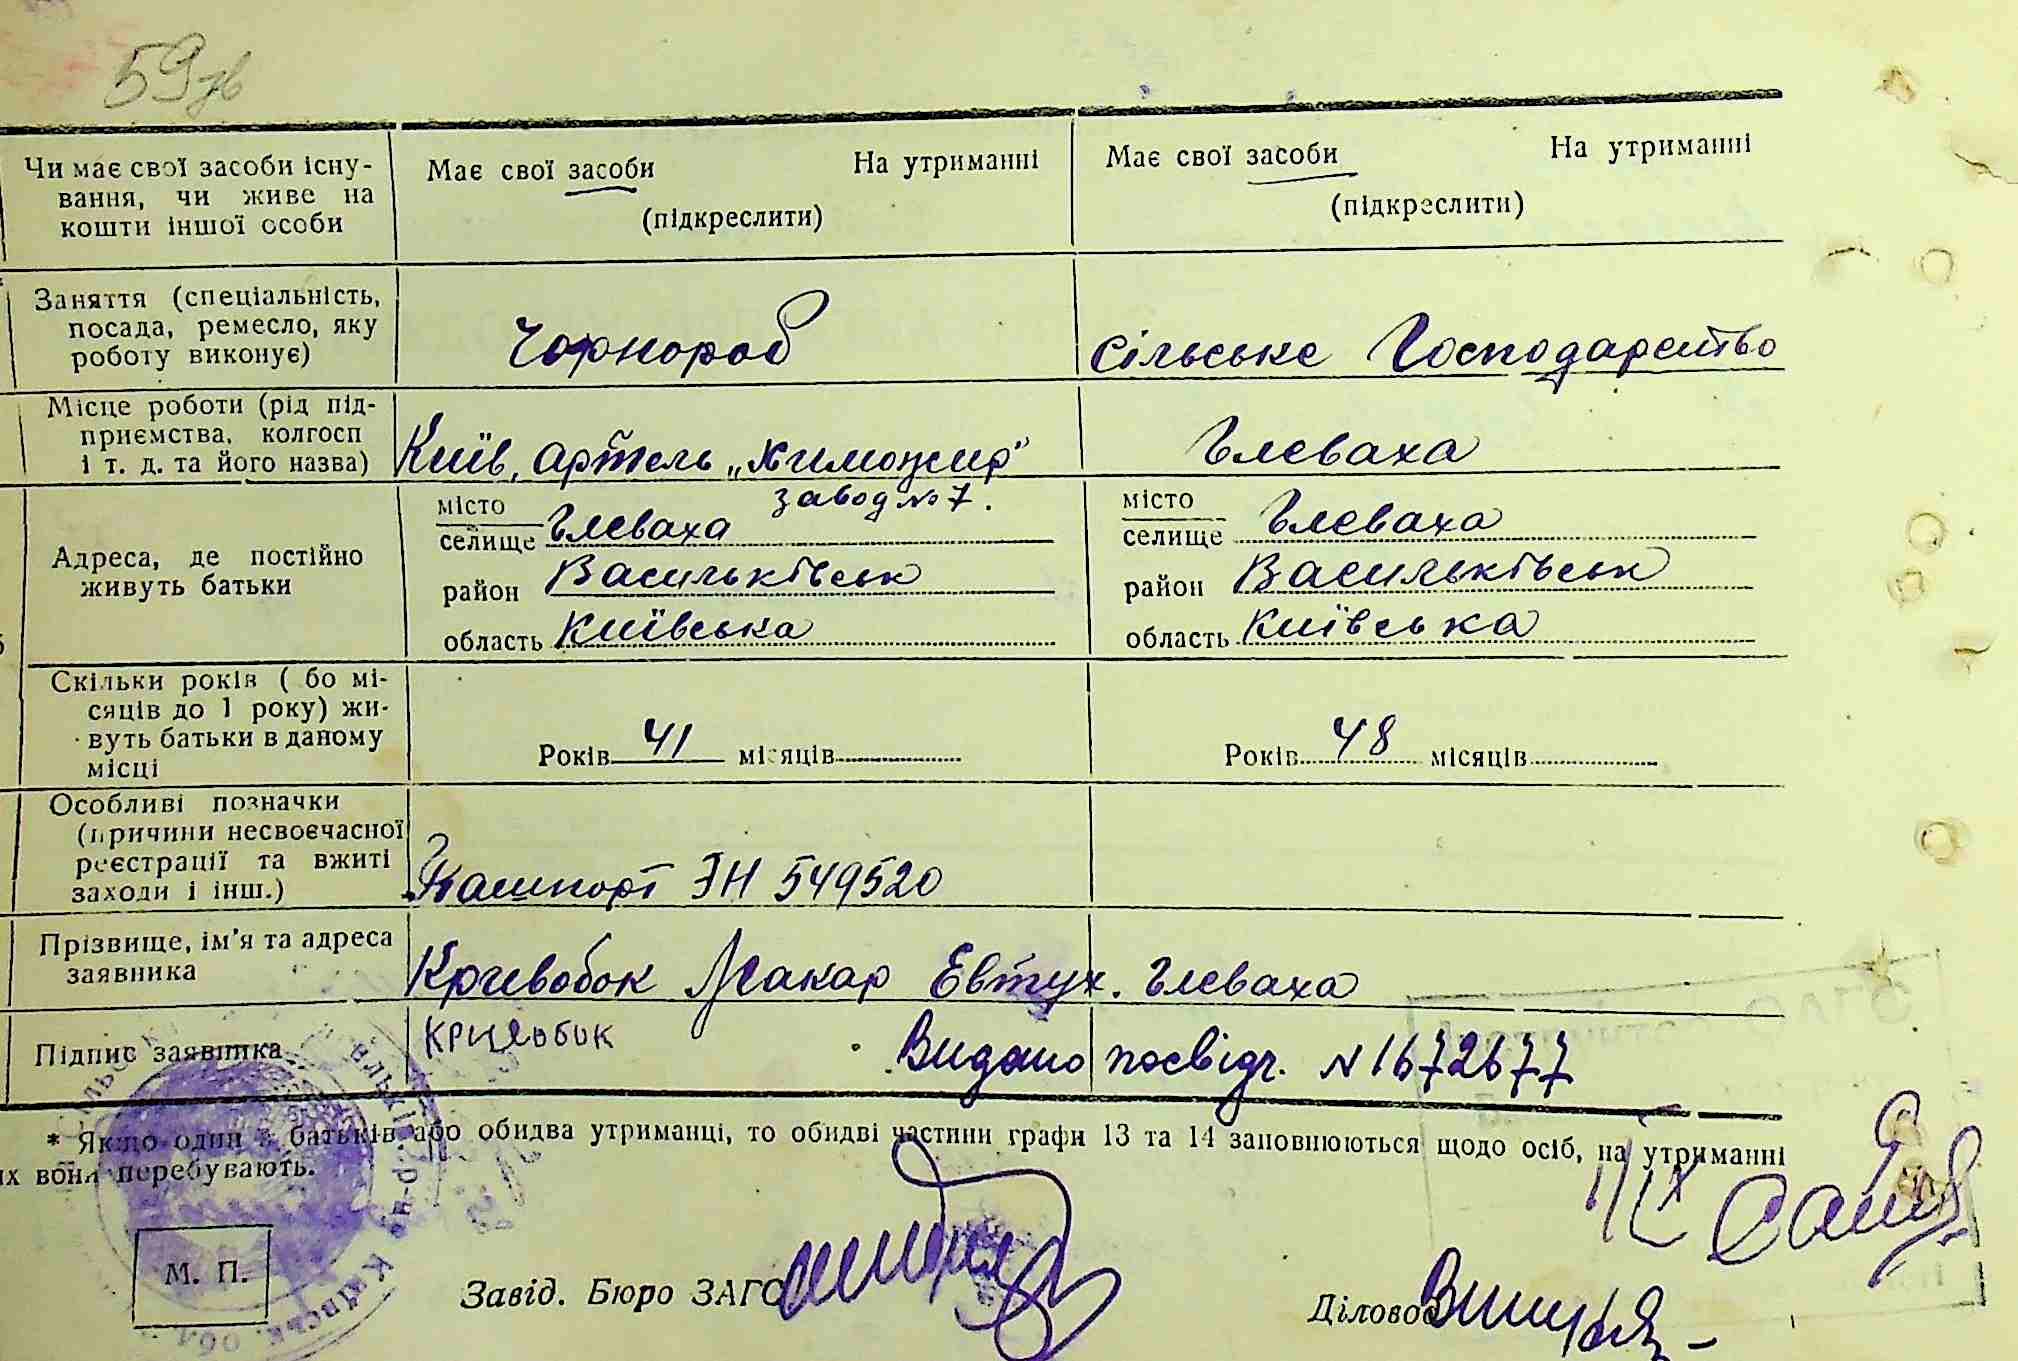 59зв
Чи має свої засоби існу-
вання, чи живе на
кошти іншої особи
Має свої засоби На утриманні
(підкреслити)
Має свої засоби На утриманні
(підкреслити)
Заняття (спеціальність,
посада, ремесло, яку
роботу виконує)
Чорнороб
сільське Господарство
Місце роботи (рід під-
приємства, колгосп
і т. д. та його назва)
Київ, артель „Химожир"
завод № 7.
Глеваха
Адреса, де постійно
живуть батьки
місто
селище Глеваха
район Васильківськ
область Київська
місто
селище Глеваха
район Васильківськ
область Київська
Скільки років ( бо мі-
сяців до 1 року) жи-
вуть батьки в даному
місці
Років 41 місяців
Років 48 місяців
Особливі позначки
(причини несвоєчасної
реєстрації та вжиті
заходи і інш.)
Пашпорт ЭН 549520
Прізвище, ім'я та адреса
заявника
Кривобок Макар Евтух. Глеваха
Підпис заявника
Видано посвідч. N 1672677
* Якщо один з батьків або обидва утриманці, то обидві частини графи 13 та 14 заповнюються щодо осіб, на утриманні
их вони перебувають.
М. П.
Завід. Бюро ЗАГС
Діловод